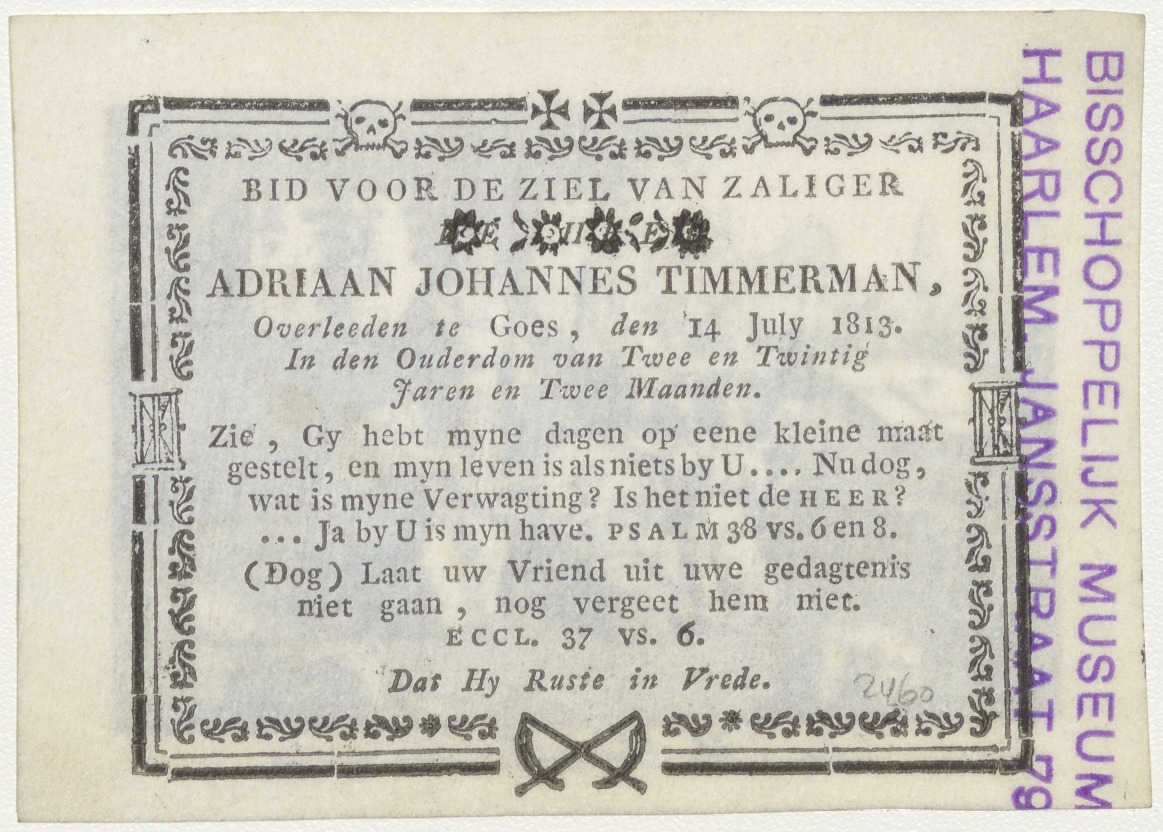 BID VOOR DE ZIEL VAN ZALIGER
ADRIAAN JOHANNES TIMMERMAN,
Overleeden te Goes, den 14 July 1813.
In den Ouderdom van Twee en Twintig
Jaren en Twee Maanden.
Zie, Gy hebt myne dagen op eene kleine maat
gestelt, en myn leven is als niets by U.... Nu dog,
wat is myne Verwagting? Is het niet de HEER?
... Ja by U is myn have. PSALM 38 vs. 6 en 8.
(Dog) Laat uw Vriend uit uwe gedagtenis
niet gaan, nog vergeet hem niet.
ECCL. 37 vs. 6.
Dat Hy Ruste in Vrede.
2460
BISSCHOPPELIJK MUSEUM
HAARLEM. JANSSTRAAT 79